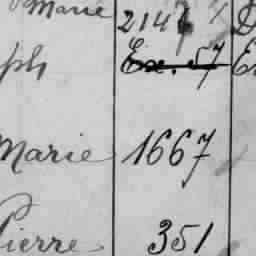 Marie 2146
ph Ex. 57 E
Marie 1667
Pierre 351